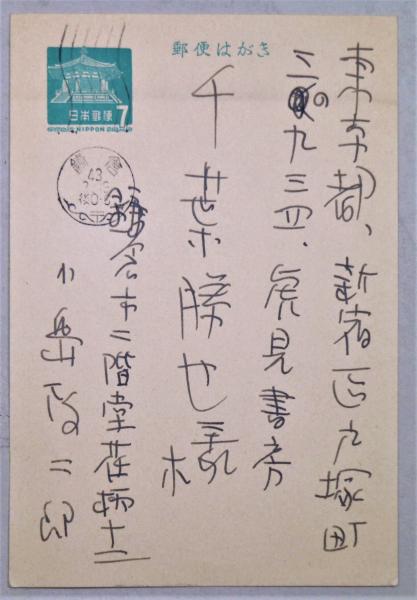 郵便はがき
日本郵便
7
NIPPON
鎌倉
43
東京都、新宿区戸塚町
三の九三四、虎見書房
千葉勝也様
鎌倉市二階堂荏柄十二
小島政二郎